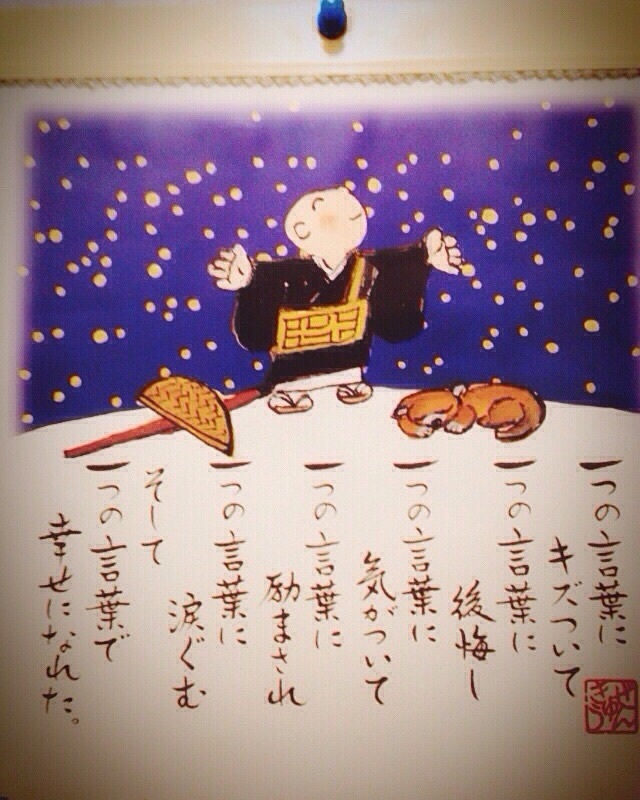 一つの言葉に
キズついて
一つの言葉に
後悔し
一つの言葉に
気がついて
一つの言葉に
励まされ
一つの言葉に
涙ぐむ
そして
一つの言葉で
幸せになれた。